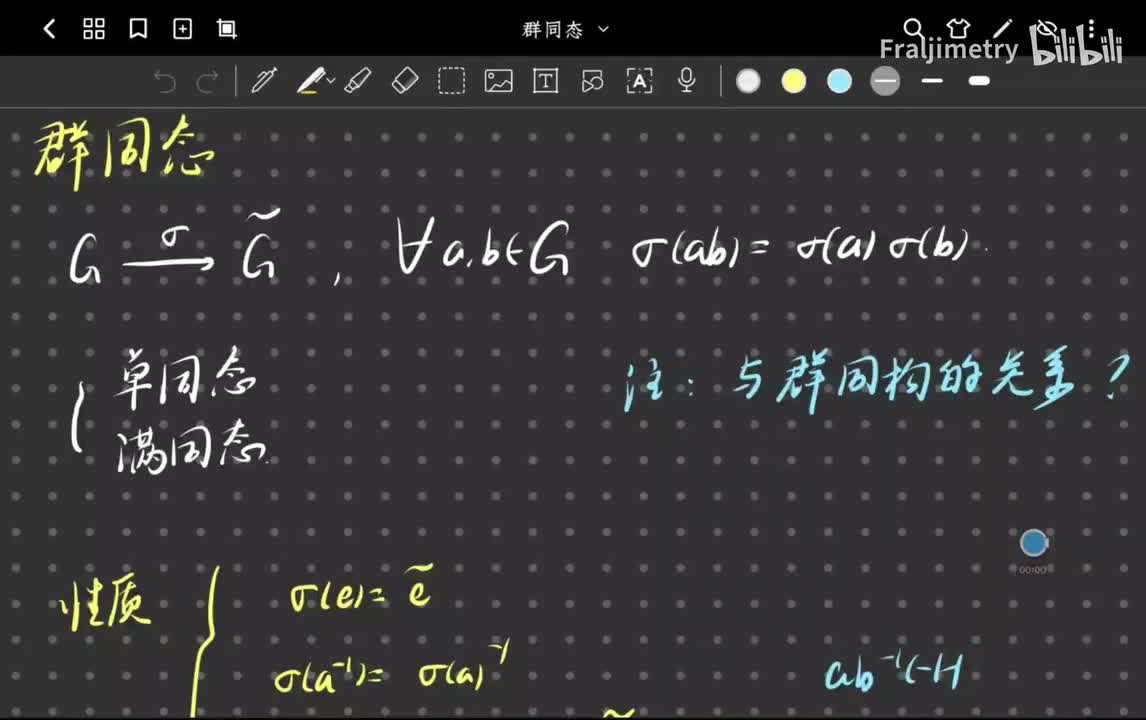 群同态
Fraljimetry bilibili
群同态
G —σ→ G̃ , ∀a,b∈G σ(ab)= σ(a)σ(b).
单同态
满同态.
注: 与群同构的关系?
00:00
性质
σ(e)= ẽ
σ(a⁻¹)= σ(a)⁻¹
ab⁻¹∈H